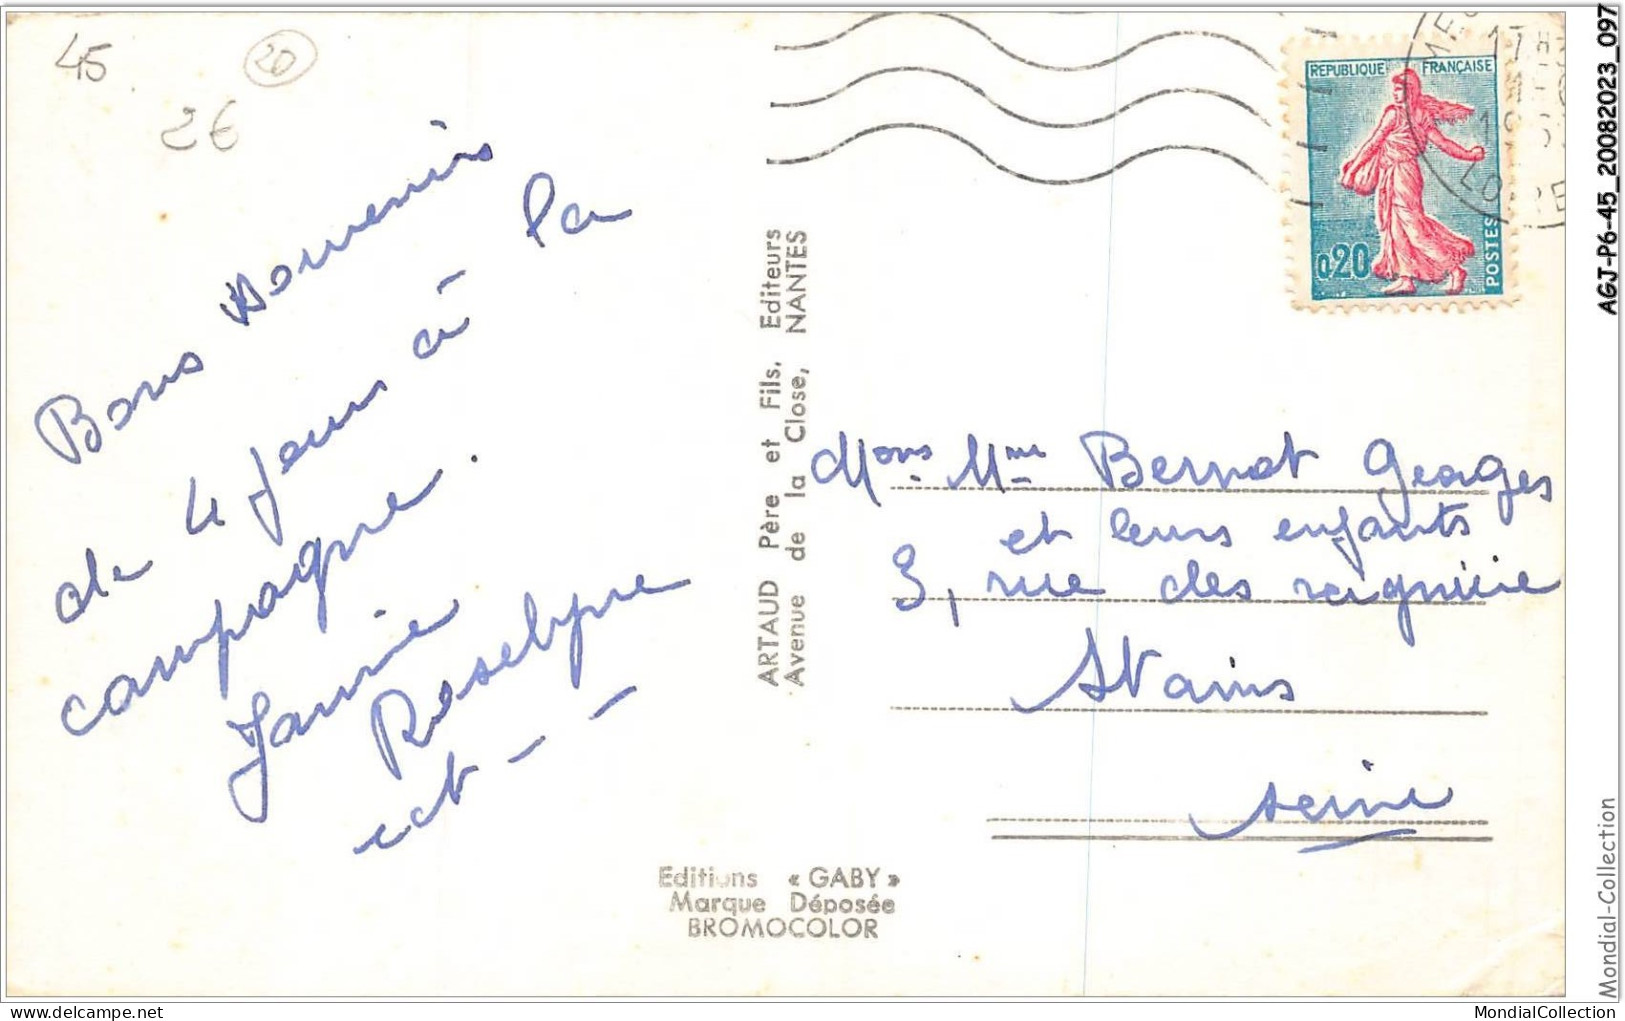 45
20
2€
Bons souvenirs
de 4 jours à la
campagne.
Janine
ect - -
ARTAUD Père et Fils, Editeurs
Avenue de la Close, NANTES
Editions « GABY »
Marque Déposée
BROMOCOLOR
REPUBLIQUE FRANÇAISE
0,20
POSTES
17H3
LOIRE
Mons Mme Bernot Georges
et leurs enfants
3, rue des
Stains
Seine
AGJ-P6-45_20082023_097
Mondial-Collection
MondialCollection